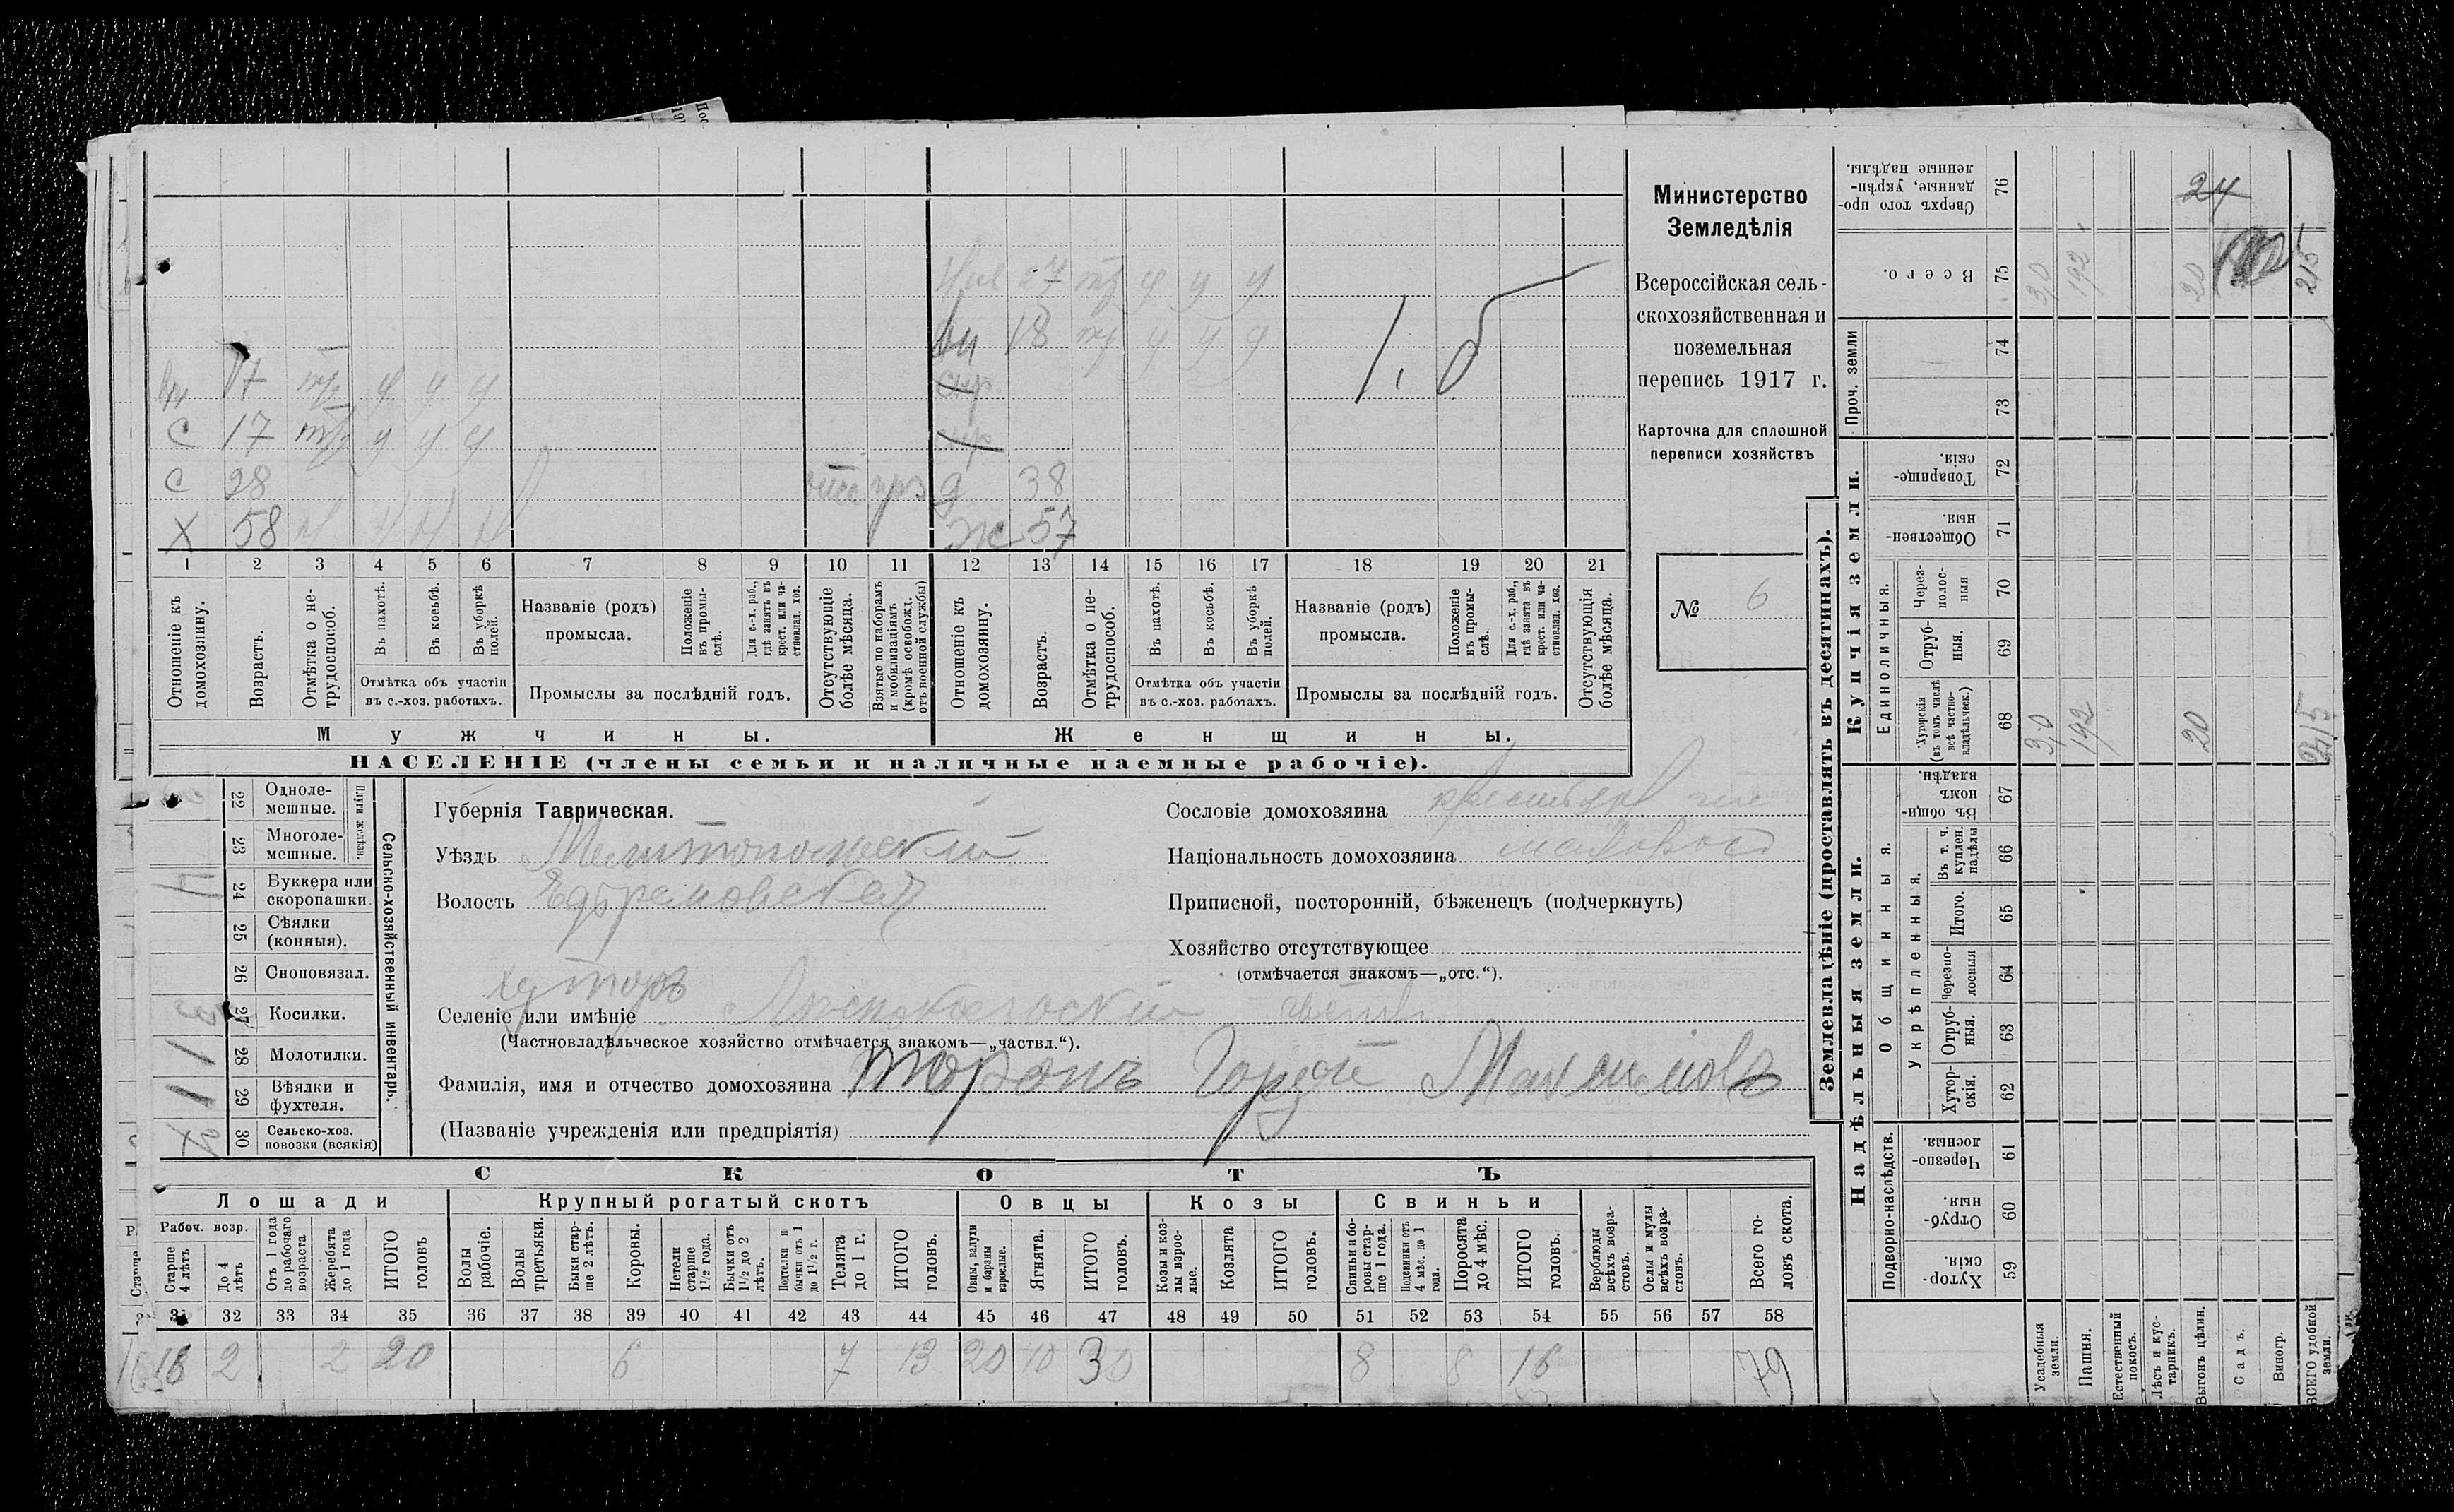 24
Х 58
С 28
С 17 тр у у у
17 у у у
Ж 57
д 38
18 у у у
27 у у у
1 2 3 4 5 6 7 8 9 10 11 12 13 14 15 16 17 18 19 20 21
Отношеніе къ домохозяину.
Возрастъ.
Отмѣтка о не-трудоспособ.
Въ пахотѣ.
Въ косьбѣ.
Въ уборкѣ полей.
Отмѣтка объ участіи
въ с.-хоз. работахъ.
Названіе (родъ)
промысла.
Положеніе въ промы-слѣ.
Для с.-х. раб., гдѣ занятъ въ крест. или ча-стновлад. хоз.
Промыслы за послѣдній годъ.
Отсутствующіе болѣе мѣсяца.
Взятые по наборамъ и мобилизаціямъ (кромѣ освобожд. отъ военной службы)
Отношеніе къ домохозяину.
Возрастъ.
Отмѣтка о не-трудоспособ.
Въ пахотѣ.
Въ косьбѣ.
Въ уборкѣ полей.
Отмѣтка объ участіи
въ с.-хоз. работахъ.
Названіе (родъ)
промысла.
Положеніе въ промы-слѣ.
Для с.-х. раб., гдѣ занята въ крест. или ча-стновлад. хоз.
Промыслы за послѣдній годъ.
Отсутствующія болѣе мѣсяца.
Мужчины.
Женщины.
НАСЕЛЕНІЕ (члены семьи и наличные наемные рабочіе).
Министерство
Земледѣлія
Всероссійская сель-
скохозяйственная и
поземельная
перепись 1917 г.
Карточка для сплошной
переписи хозяйствъ
№ 6
Сельско-хозяйственный инвентарь.
Плуги желѣзн.
22 Одноле-мешные.
23 Многоле-мешные.
24 Буккера или скоропашки.
25 Сѣялки (конныя).
26 Сноповязал.
27 Косилки.
28 Молотилки.
29 Вѣялки и фухтеля.
30 Сельско-хоз. повозки (всякія)
Губернія Таврическая.
Уѣздъ Мелитопольскій
Волость Ефремовская
хуторъ
Селеніе или имѣніе
(Частновладѣльческое хозяйство отмѣчается знакомъ—„частвл.“).
Фамилія, имя и отчество домохозяина Торанъ Гордѣй Максимовъ
(Названіе учрежденія или предпріятія)
Сословіе домохозяина
Національность домохозяина малорос
Приписной, посторонній, бѣженецъ (подчеркнуть)
Хозяйство отсутствующее
(отмѣчается знакомъ—„отс.“).
СКОТЪ
Лошади
Крупный рогатый скотъ
Овцы
Козы
Свиньи
Рабоч. возр.
Старше 4 лѣтъ
До 4 лѣтъ
Отъ 1 года до рабочаго возраста
Жеребята до 1 года
ИТОГО головъ
Волы рабочіе.
Волы третьяки.
Быки стар-ше 2 лѣтъ.
Коровы.
Нетели старше 1½ года.
Бычки отъ 1½ до 2 лѣтъ.
Подтелки и бычки отъ 1 до 1½ г.
Телята до 1 г.
ИТОГО головъ.
Овцы, валухи и бараны взрослые.
Ягнята.
ИТОГО головъ.
Козы и коз-лы взрос-лые.
Козлята
ИТОГО головъ.
Свиньи и бо-ровы стар-ше 1 года.
Подсвинки отъ 4 мѣс. до 1 года.
Поросята до 4 мѣс.
ИТОГО головъ.
Верблюды всѣхъ возра-стовъ.
Ослы и мулы всѣхъ возра-стовъ.
Всего го-ловъ скота.
31 32 33 34 35 36 37 38 39 40 41 42 43 44 45 46 47 48 49 50 51 52 53 54 55 56 57 58
18 2 2 20 6 7 13 20 10 30 8 8 16 79
Землевладѣніе (проставлять въ десятинахъ).
Надѣльныя земли.
Купчія земли.
Проч. земли
Подворно-наслѣдств.
Общинныя.
Укрѣпленныя.
Единоличныя.
Хутор-скія. 59
Отруб-ныя. 60
Черезпо-лосныя. 61
Хутор-скія. 62
Отруб-ныя. 63
Черезпо-лосныя 64
Итого. 65
Въ т. ч. куплен. надѣлы 66
Въ общин-номъ владѣн. 67
Хуторскія (въ томъ числѣ всѣ частно-владѣльческ.) 68
Отруб-ныя. 69
Через-полос-ныя 70
Обществен-ныя. 71
Товарище-скія. 72
73
74
Всего. 75
Сверхъ того про-данные, укрѣп-ленные надѣлы. 76
Усадебныя земли. 3,0 3,0
Пашня. 192 192
Естественный покосъ.
Лѣсъ и кус-тарникъ.
Выгонъ цѣлин. 20 20
Садъ.
Виногр.
ВСЕГО удобной земли. 215 215